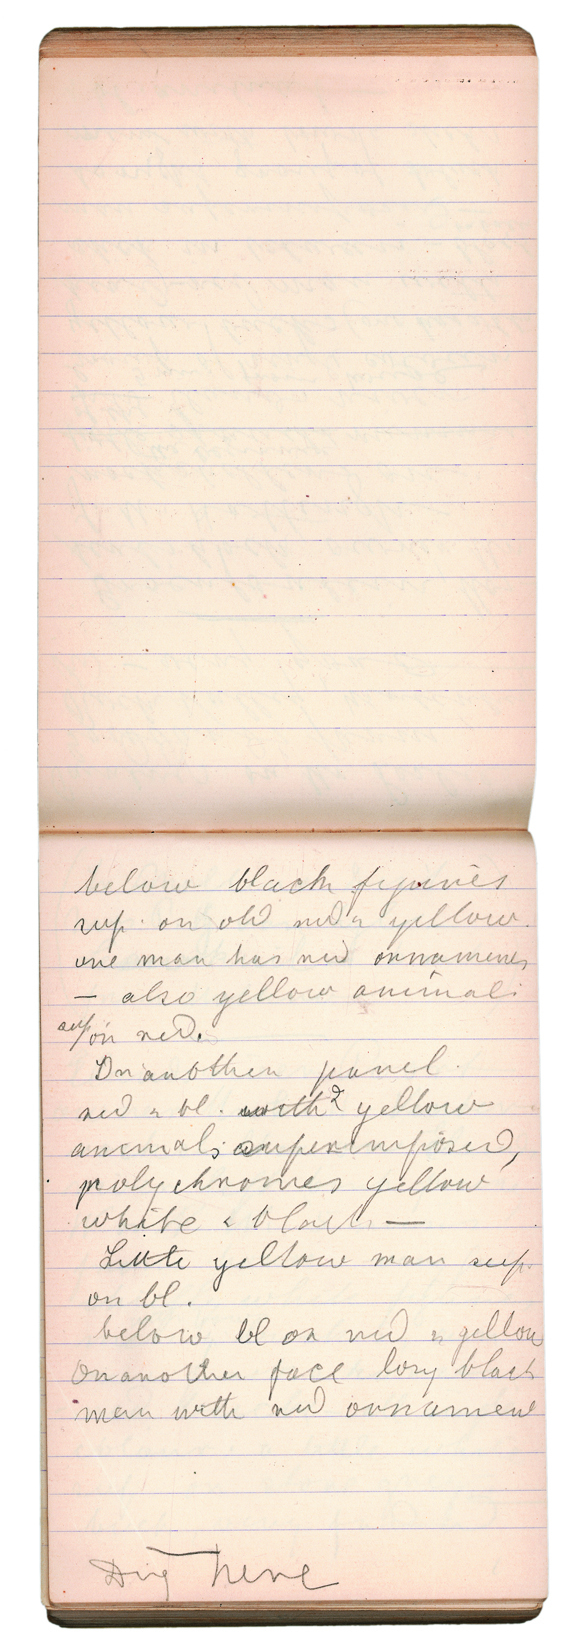 below black figures
sup. on old red & yellow.
one man has red ornaments
— also yellow animals
sup/on red.
On another panel.
red & bl. with? yellow
animals superimposed,
polychromes yellow
white & black —
Little yellow man sup.
on bl.
below bl on red & yellow
On another face long black
man with red ornament
Dig here